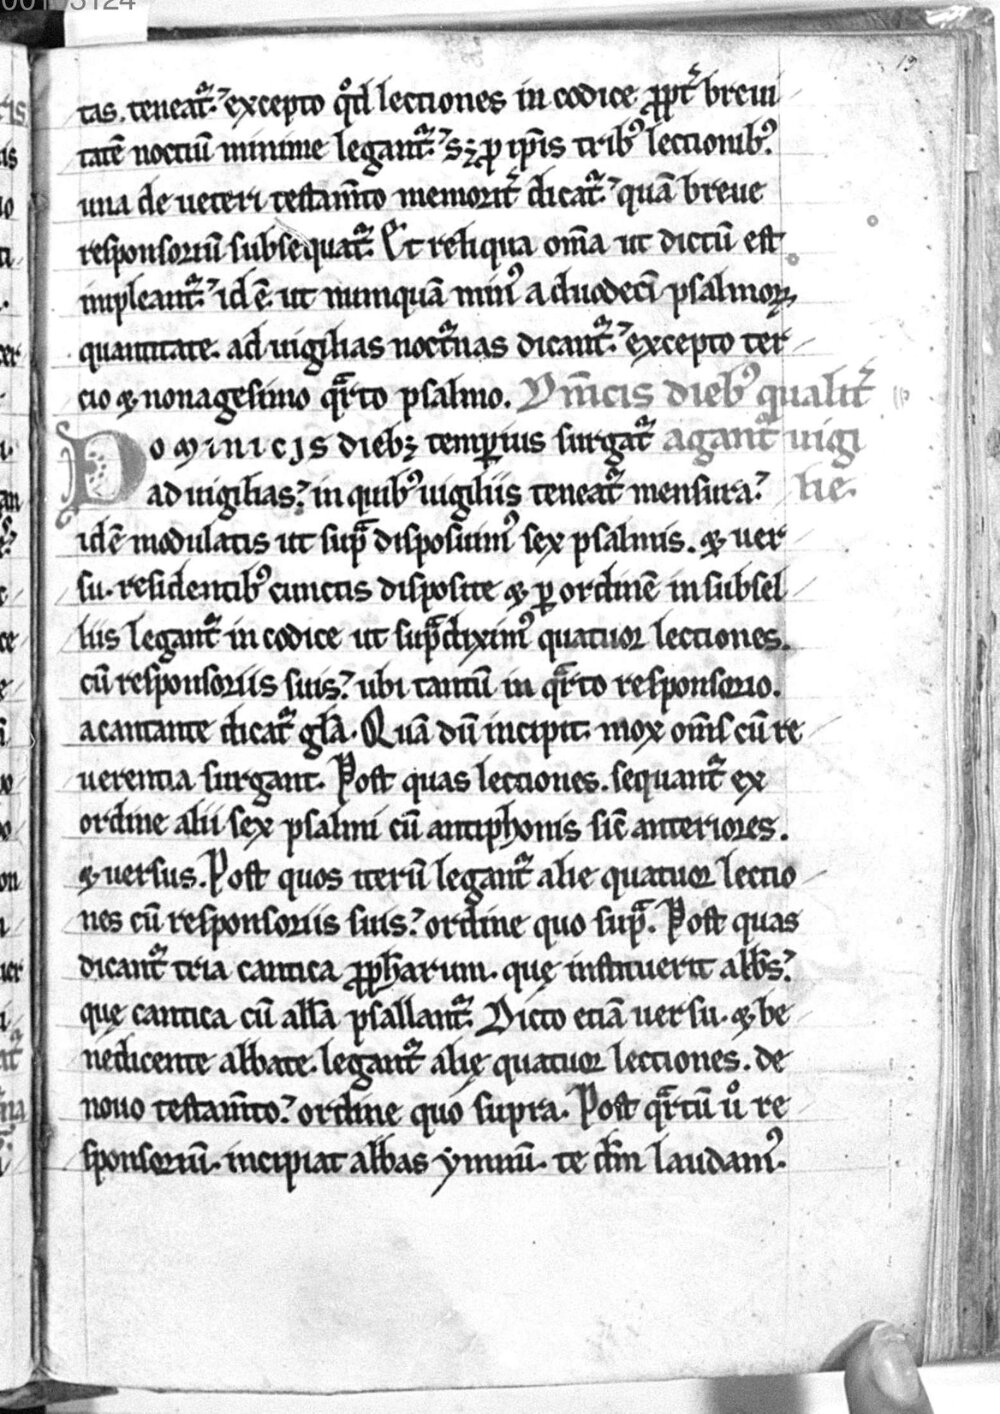 00103124
19
tas. teneat᷑. excepto qͦd lectiones in codice ꝓpt᷑ breui
tatē noctiū minime legant᷑. sꝫ ꝓ ip̄is tribꝰ lectionibꝰ.
una de ueteri testam̄to memorit᷑ dicat᷑. quā breue
responsoriū subsequat᷑. Et reliqua om̄a ut dictū est
impleant᷑. id ē. ut numquā minꝰ a duodecī psalmoꝝ
quantitate. ad uigilias noct᷑nas dicant᷑. excepto ter
cio ⁊ nonagesimo qᷓrto psalmo. Dn̄icis diebꝰ qualit᷑
Dominicis diebꝫ temꝑius surgat᷑ agant᷑ uigi
ad uigilias. in quibꝰ uigiliis teneat᷑ mensura. lie.
idē modulatis ut supᷓ disposuimꝰ sex psalmis. ⁊ uer
su. residentibꝰ cunctis disposite ⁊ ꝑ ordinē in subsel
liis legant᷑ in codice ut supᷓ diximꝰ quatuor lectiones.
cū responsoriis suis. ubi tantū in qᷓrto responsorio.
a cantante dicat᷑ gl̄a. Quā dū incipit. mox om̄s cū re
uerentia surgant. Post quas lectiones. sequant᷑ ex
ordine alii sex psalmi cū antiphonis sic̄ anteriores.
⁊ uersus. Post quos iterū legant᷑ alie quatuor lectio
nes cū responsoriis suis. ordine quo supᷓ. Post quas
dicant᷑ tria cantica ꝓpharum. quę instituerit abb̄s.
quę cantica cū all̄a psallant᷑. Dicto etiā uersu. ⁊ be
nedicente abbate. legant᷑ alię quatuor lectiones. de
nouo testam̄to. ordine quo supra. Post qᷓrtū uͦ re
sponsoriū. incipiat abbas ymnū. te dm̄ laudamꝰ.